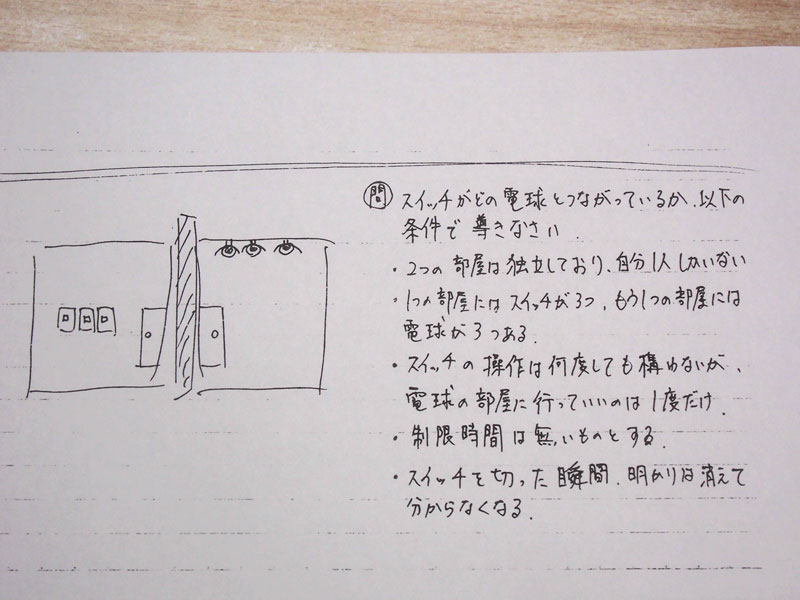 問 スイッチがどの電球とつながっているか、以下の
条件で導きなさい.
・2つの部屋は独立しており、自分1人しかいない
・1つの部屋にはスイッチが3つ、もう1つの部屋には
電球が3つある.
・スイッチの操作は何度しても構わないが、
電球の部屋に行っていいのは1度だけ.
・制限時間は無いものとする.
・スイッチを切った瞬間、明かりは消えて
分からなくなる.